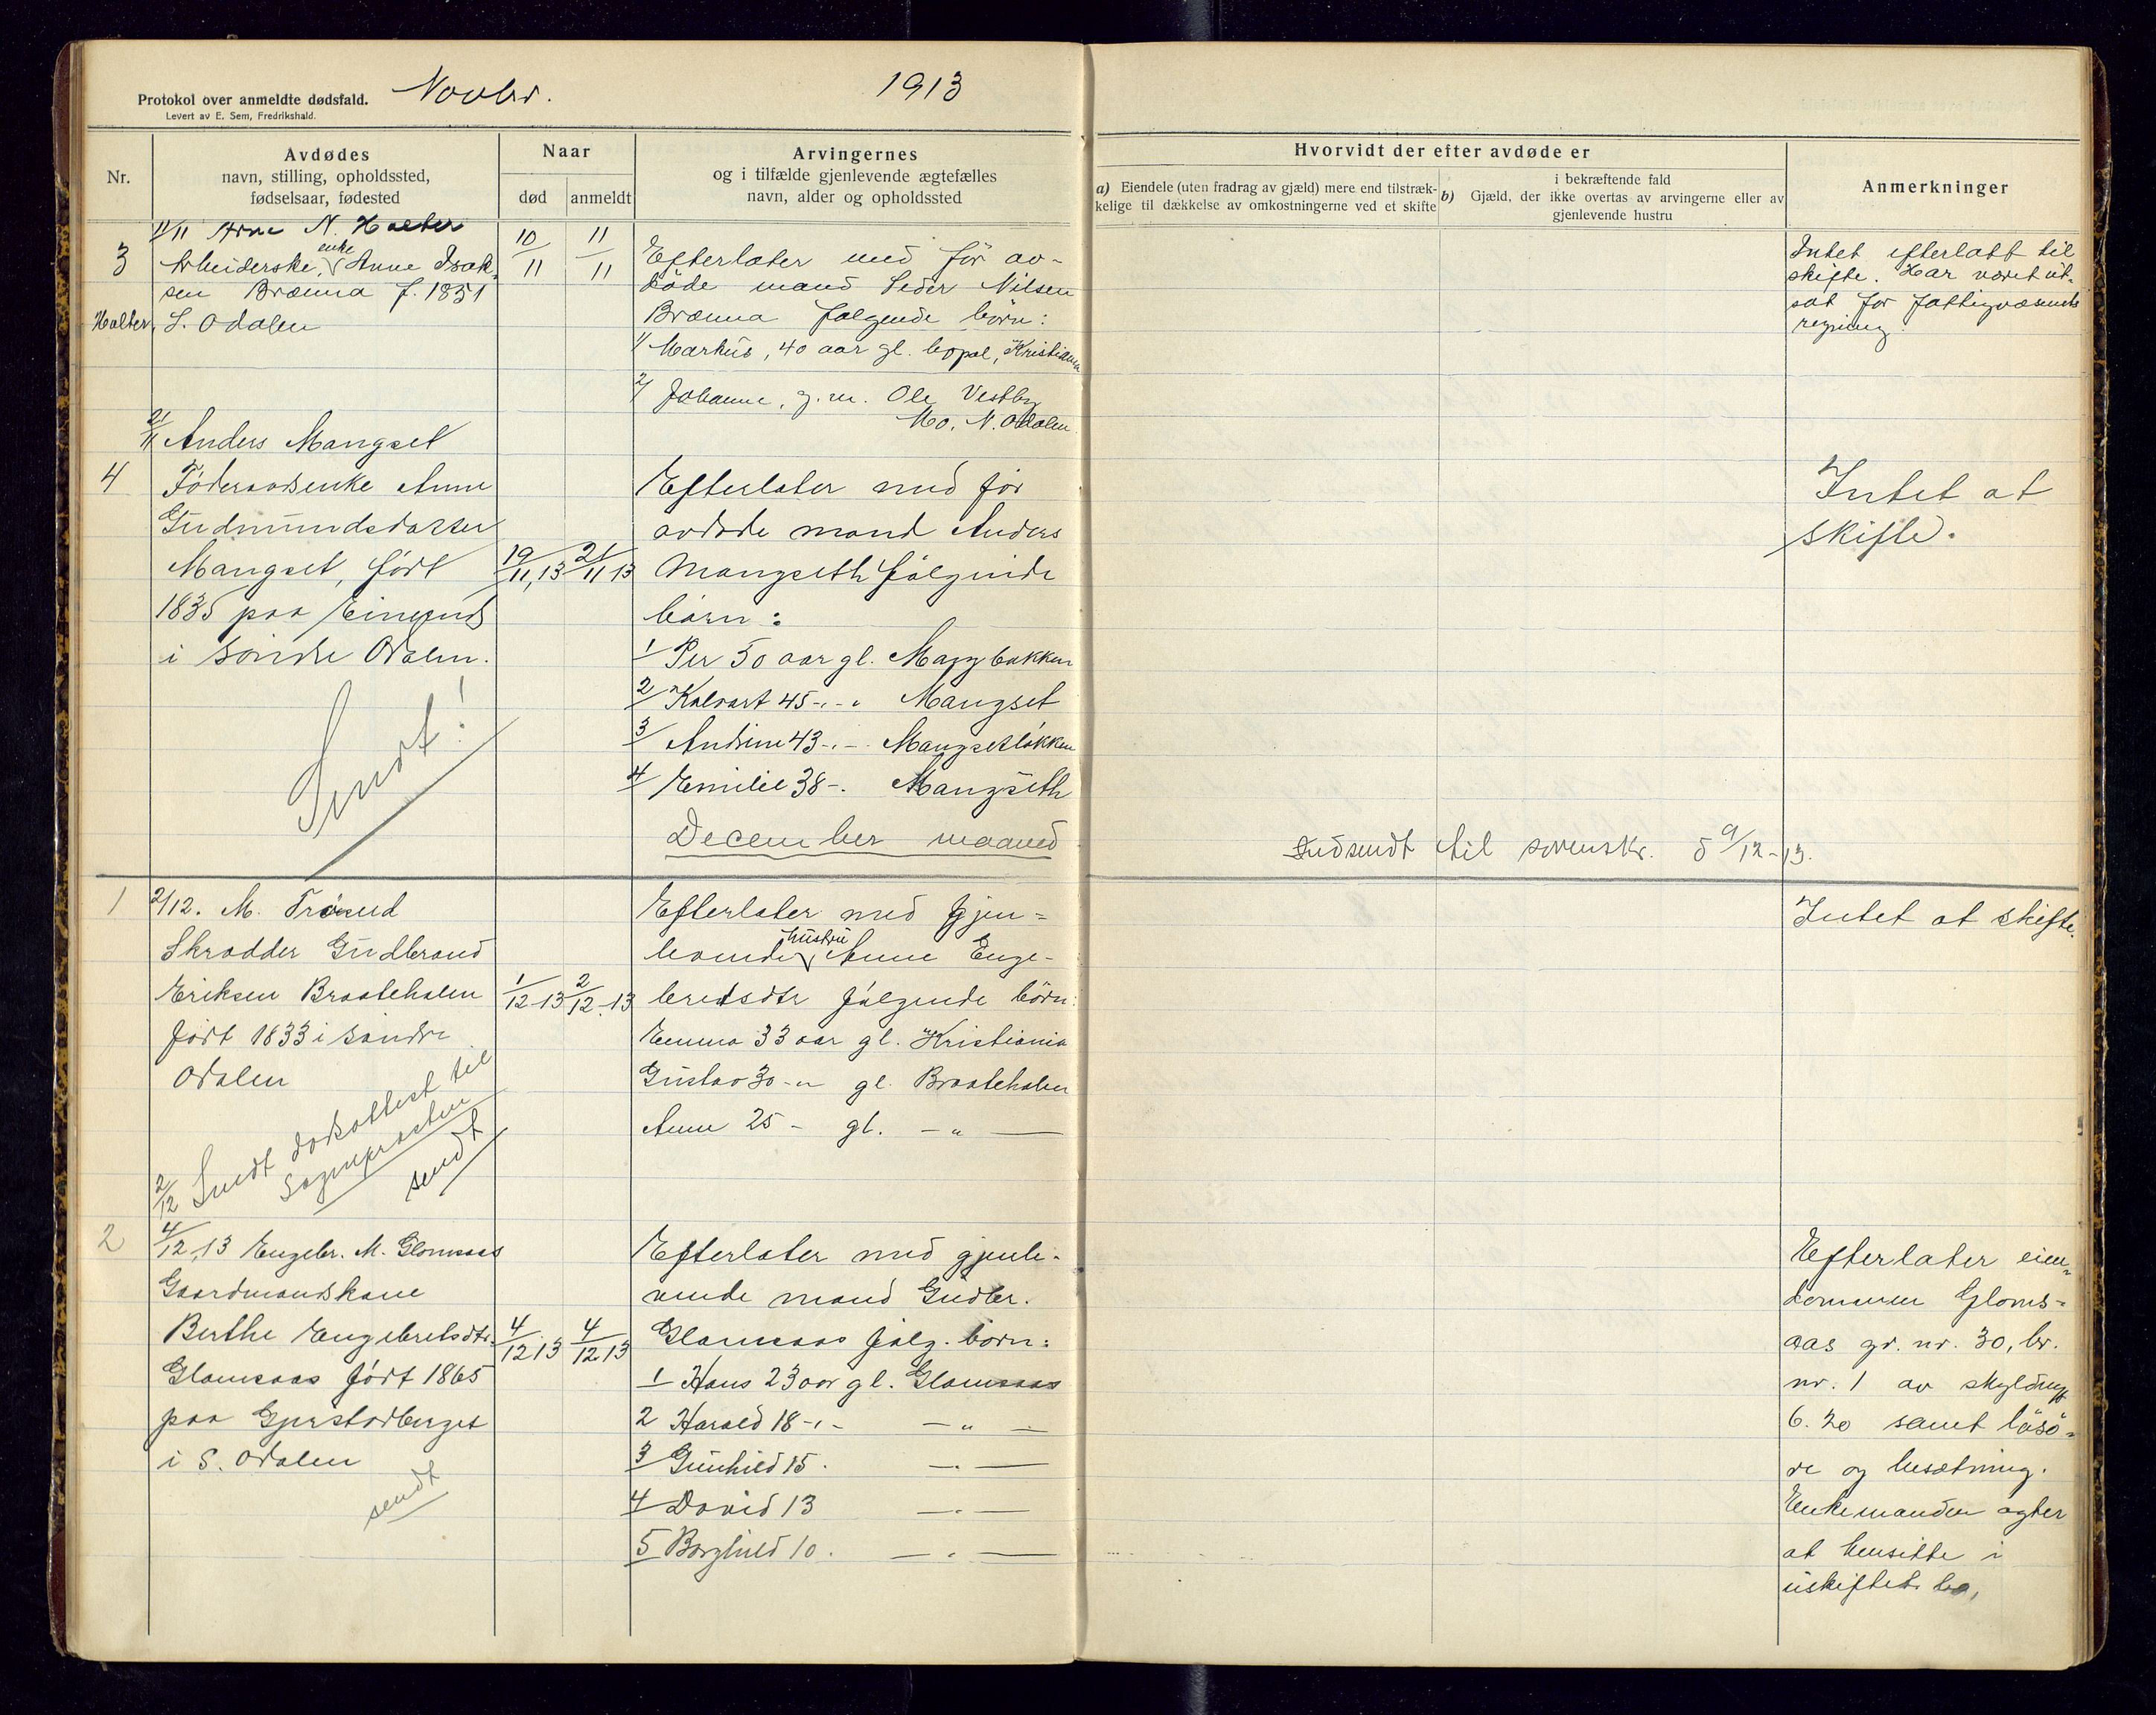 Protokol over anmeldte dødsfald.
Levert av E. Sem, Fredrikshald.
Novbr.
1913
Nr.
Avdødes
navn, stilling, opholdssted,
fødselsaar, fødested
Naar
død
anmeldt
Arvingernes
og i tilfælde gjenlevende ægtefælles
navn, alder og opholdssted
Hvorvidt der efter avdøde er
a) Eiendele (uten fradrag av gjæld) mere end tilstræk-
kelige til dækkelse av omkostningerne ved et skifte
i bekræftende fald
b) Gjæld, der ikke overtas av arvingerne eller av
gjenlevende hustru
Anmerkninger
11/11 Arne N. Holter
3
Arbeiderske, enke Anne Isak-
sen Brænna f. 1851
Holter, S. Odalen
10/11
11/11
Efterlater med før av-
døde mand Peder Nilsen
Brænna følgende børn:
1/ Markus, 40 aar gl. bopæl, Kristiania
2/ Johanne, g. m. Ole Vestby
Mo. N. Odalen
Intet efterlatt til
skifte. Har været ut-
sat for fattigvæsenets
regning.
21/11 Anders Mangset
4
Føderaadsenke Anne
Gudmundsdatter
Mangset, født
1835 paa Eingund
i søndre Odalen.
19/11,13
21/11 13
Efterlater med før
avdøde mand Anders
Mangseth følgende
børn:
1 Per 50 aar gl. Magybakken
2 Kalvart 45 -,- „ Mangset
3 Andrine 43 -,- Mangsetløkken
4 Emilie 38 -. Mangseth
Intet at
skifte.
Sendt!
December maaned
Indsendt til sorenskr. d 9/12-13.
1
2/12. M. Trøsud
Skrædder Gudbrand
Eriksen Braatehalen
født 1833 i søndre
Odalen
1/12-13
2/12-13
Efterlater med gjen-
levende hustru Anne Enge-
bretsdtr følgende børn:
Emma 33 aar gl. Kristiania
Gustav 30 -„ gl. Braatehalen
Anne 25 - gl. -„-
Intet at skifte.
2/12 Sendt dødsattest til
Sogneprästen
sendt
2
4/12,13 Engebr. M. Glomsaas
Gaardmandskone
Berthe Engebretsdtr.
Glomsaas født 1865
paa Gjerstadberget
i S. Odalen
sendt
4/12 13
4/12.13
Efterlater med gjenle-
vende mand Gudbr.
Glomsaas følg. børn:
1 Hans 23 aar gl. Glomsaas
2 Harald 18 -,- -„-
3 Gunhild 15. -„-
4 David 13 -„-
5 Borghild 10. -„-
Efterlater eien-
dommen Gloms-
aas gr. nr. 30, br.
nr. 1 av skyldmrk
6.20 samt løsø-
re og besætning.
Enkemanden agter
at hensitte i
uskiftet bo,